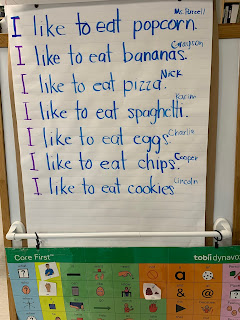 Ms. Purcell
I like to eat popcorn.
Grayson
I like to eat bananas.
Nick
I like to eat pizza.
Karim
I like to eat spaghetti.
Charlie
I like to eat eggs.
Cooper
I like to eat chips.
Lincoln
I like to eat cookies
Core First™
tobii dynavox
a
&
@